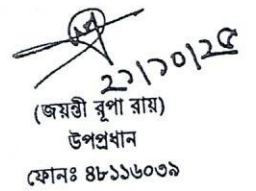 ২১/১০/২৫
(জয়ন্তী রূপা রায়)
উপপ্রধান
ফোনঃ ৪৮১১৬০৩৯